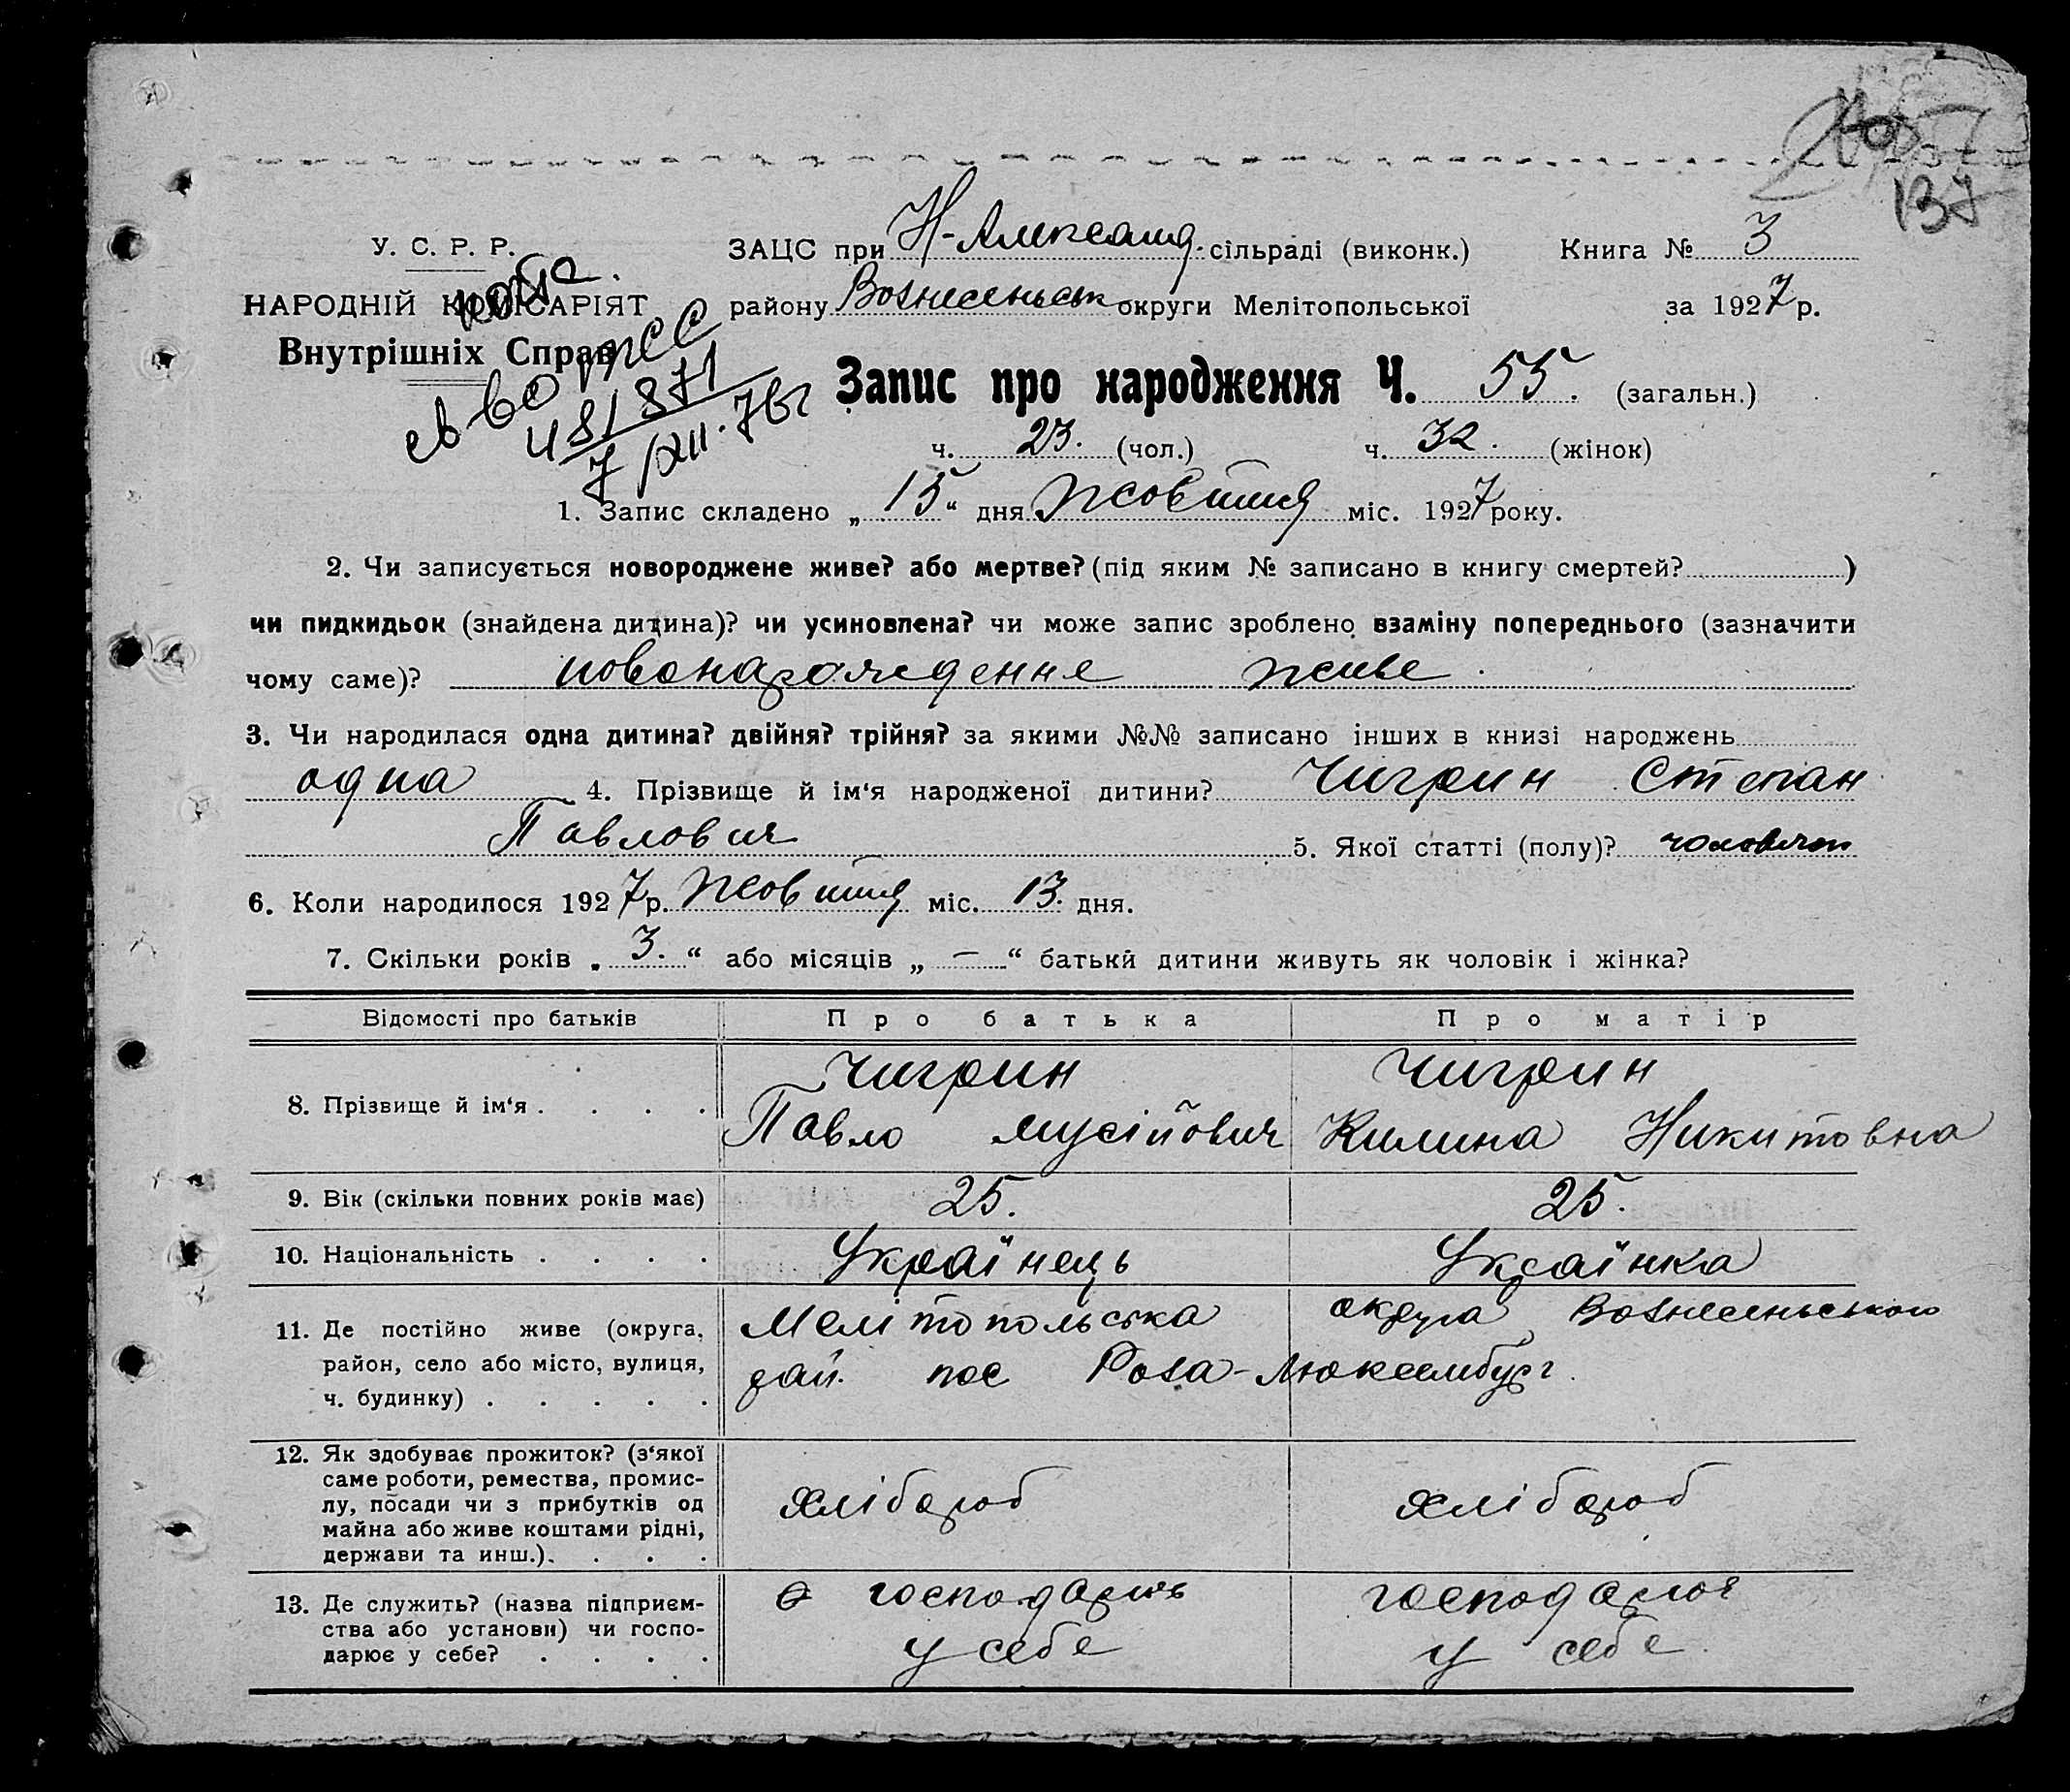 137
У. С. Р. Р.
НАРОДНІЙ КОМІСАРІЯТ
Внутрішніх Справ
481871
7/XII-76г
ЗАЦС при Н-Александ. сільраді (виконк.) Книга № 3
району Вознесенськ округи Мелітопольської за 1927 р.
Запис про народження Ч. 55. (загальн.)
ч. 23. (чол.) ч. 32. (жінок)
1. Запис складено „ 15 “ дня Жовтня міс. 1927 року.
2. Чи записується новороджене живе? або мертве? (під яким № записано в книгу смертей? )
чи пидкидьок (знайдена дитина)? чи усиновлена? чи може запис зроблено взаміну попереднього (зазначити
чому саме)? новонарождення живе.
3. Чи народилася одна дитина? двійня? трійня? за якими №№ записано інших в книзі народжень
одна 4. Прізвище й ім‘я народженої дитини? Чигрин Степан
Павлович 5. Якої статті (полу)?
6. Коли народилося 1927 р. Жовтня міс. 13. дня.
7. Скільки років „ 3. “ або місяців „ — “ батьки дитини живуть як чоловік і жінка?
Відомості про батьків Про батька Про матір
8. Прізвище й ім‘я . . . . Чигрин Чигрин
Павло Мусійович Килина Никитовна
9. Вік (скільки повних років має) 25. 25.
10. Національність . . . . Українець Українка
11. Де постійно живе (округа, Мелітопольська округа Вознесенського
район, село або місто, вулиця, рай. пос Роза-Люксембург.
ч. будинку) . . . . .
12. Як здобуває прожиток? (з‘якої
саме роботи, ремества, промис-
лу, посади чи з прибутків од хлібороб хлібороб
майна або живе коштами рідні,
держави та инш.). . . .
13. Де служить? (назва підприєм- господарює господарює
ства або установи) чи госпо- у себе у себе.
дарює у себе? . . . .